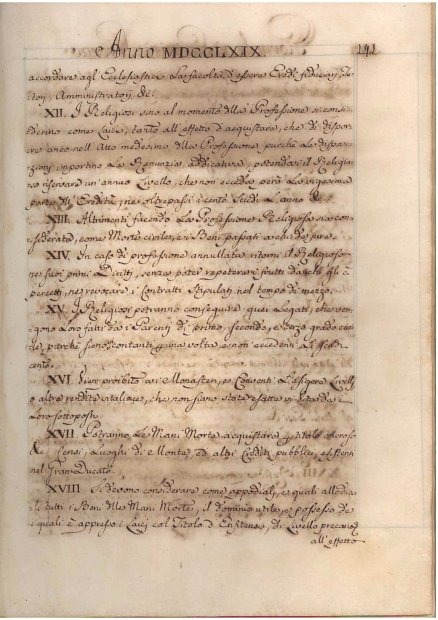 Anno MDCCLXIX 141
accordare agl' Ecclesiastici La facoltà d'essere Eredi fiduciarj, Tu-
tori, Amministratori &c.
XII. I Religiosi sino al momento della Professione si consi-
derino come Laici, tanto all'effetto d'acquistare, che di dispor-
re anco nell'Atto medesimo della Professione purchè La disposi-
zioni importino La Renunzia addicativa, potendosi il Religio-
so riservare un annuo Livello, che non ecceda però La vigesima
parte dell'Eredità, nè oltrepassi i cento Scudi L'anno &c.
XIII. Altrimenti facendo La Professione Religiosa sia con-
siderata, come Morte civile, e i Beni passati a chi di jure.
XIV. In caso di professione annullata ritorni il Religioso
ne' suoi primi Diritti, senza poter repetere i frutti da chi gli à
percetti, nè revocare i Contratti Stipulati nel tempo di mezzo.
XV. I Religiosi potranno conseguire quei Legati, che ven-
gono Loro fatti da i Parenti di primo, secondo, e terzo grado civi-
le, purchè sieno contanti p una volta, e non eccedenti Li Scudi
cento.
XVI. Viene proibito ai Monasteri, e Conventi L'esigere Livelli,
o altre rendite vitalizie, che non siano state esatte in
Loro sottoposti.
XVII. Potranno Le Mani Morte acquistare p titolo oneroso
Censi, Luoghi di Monte, ed altri Crediti pubblici esistenti
nel Gran Ducato.
XVIII Si devono considerare come appodiali, e quali allodia-
li tutti i Beni delle Mani Morte, il dominio utile, e possesso de
i quali è appresso i Laici col Titolo d'Enfiteusi, di Livello, precario,
all'effetto